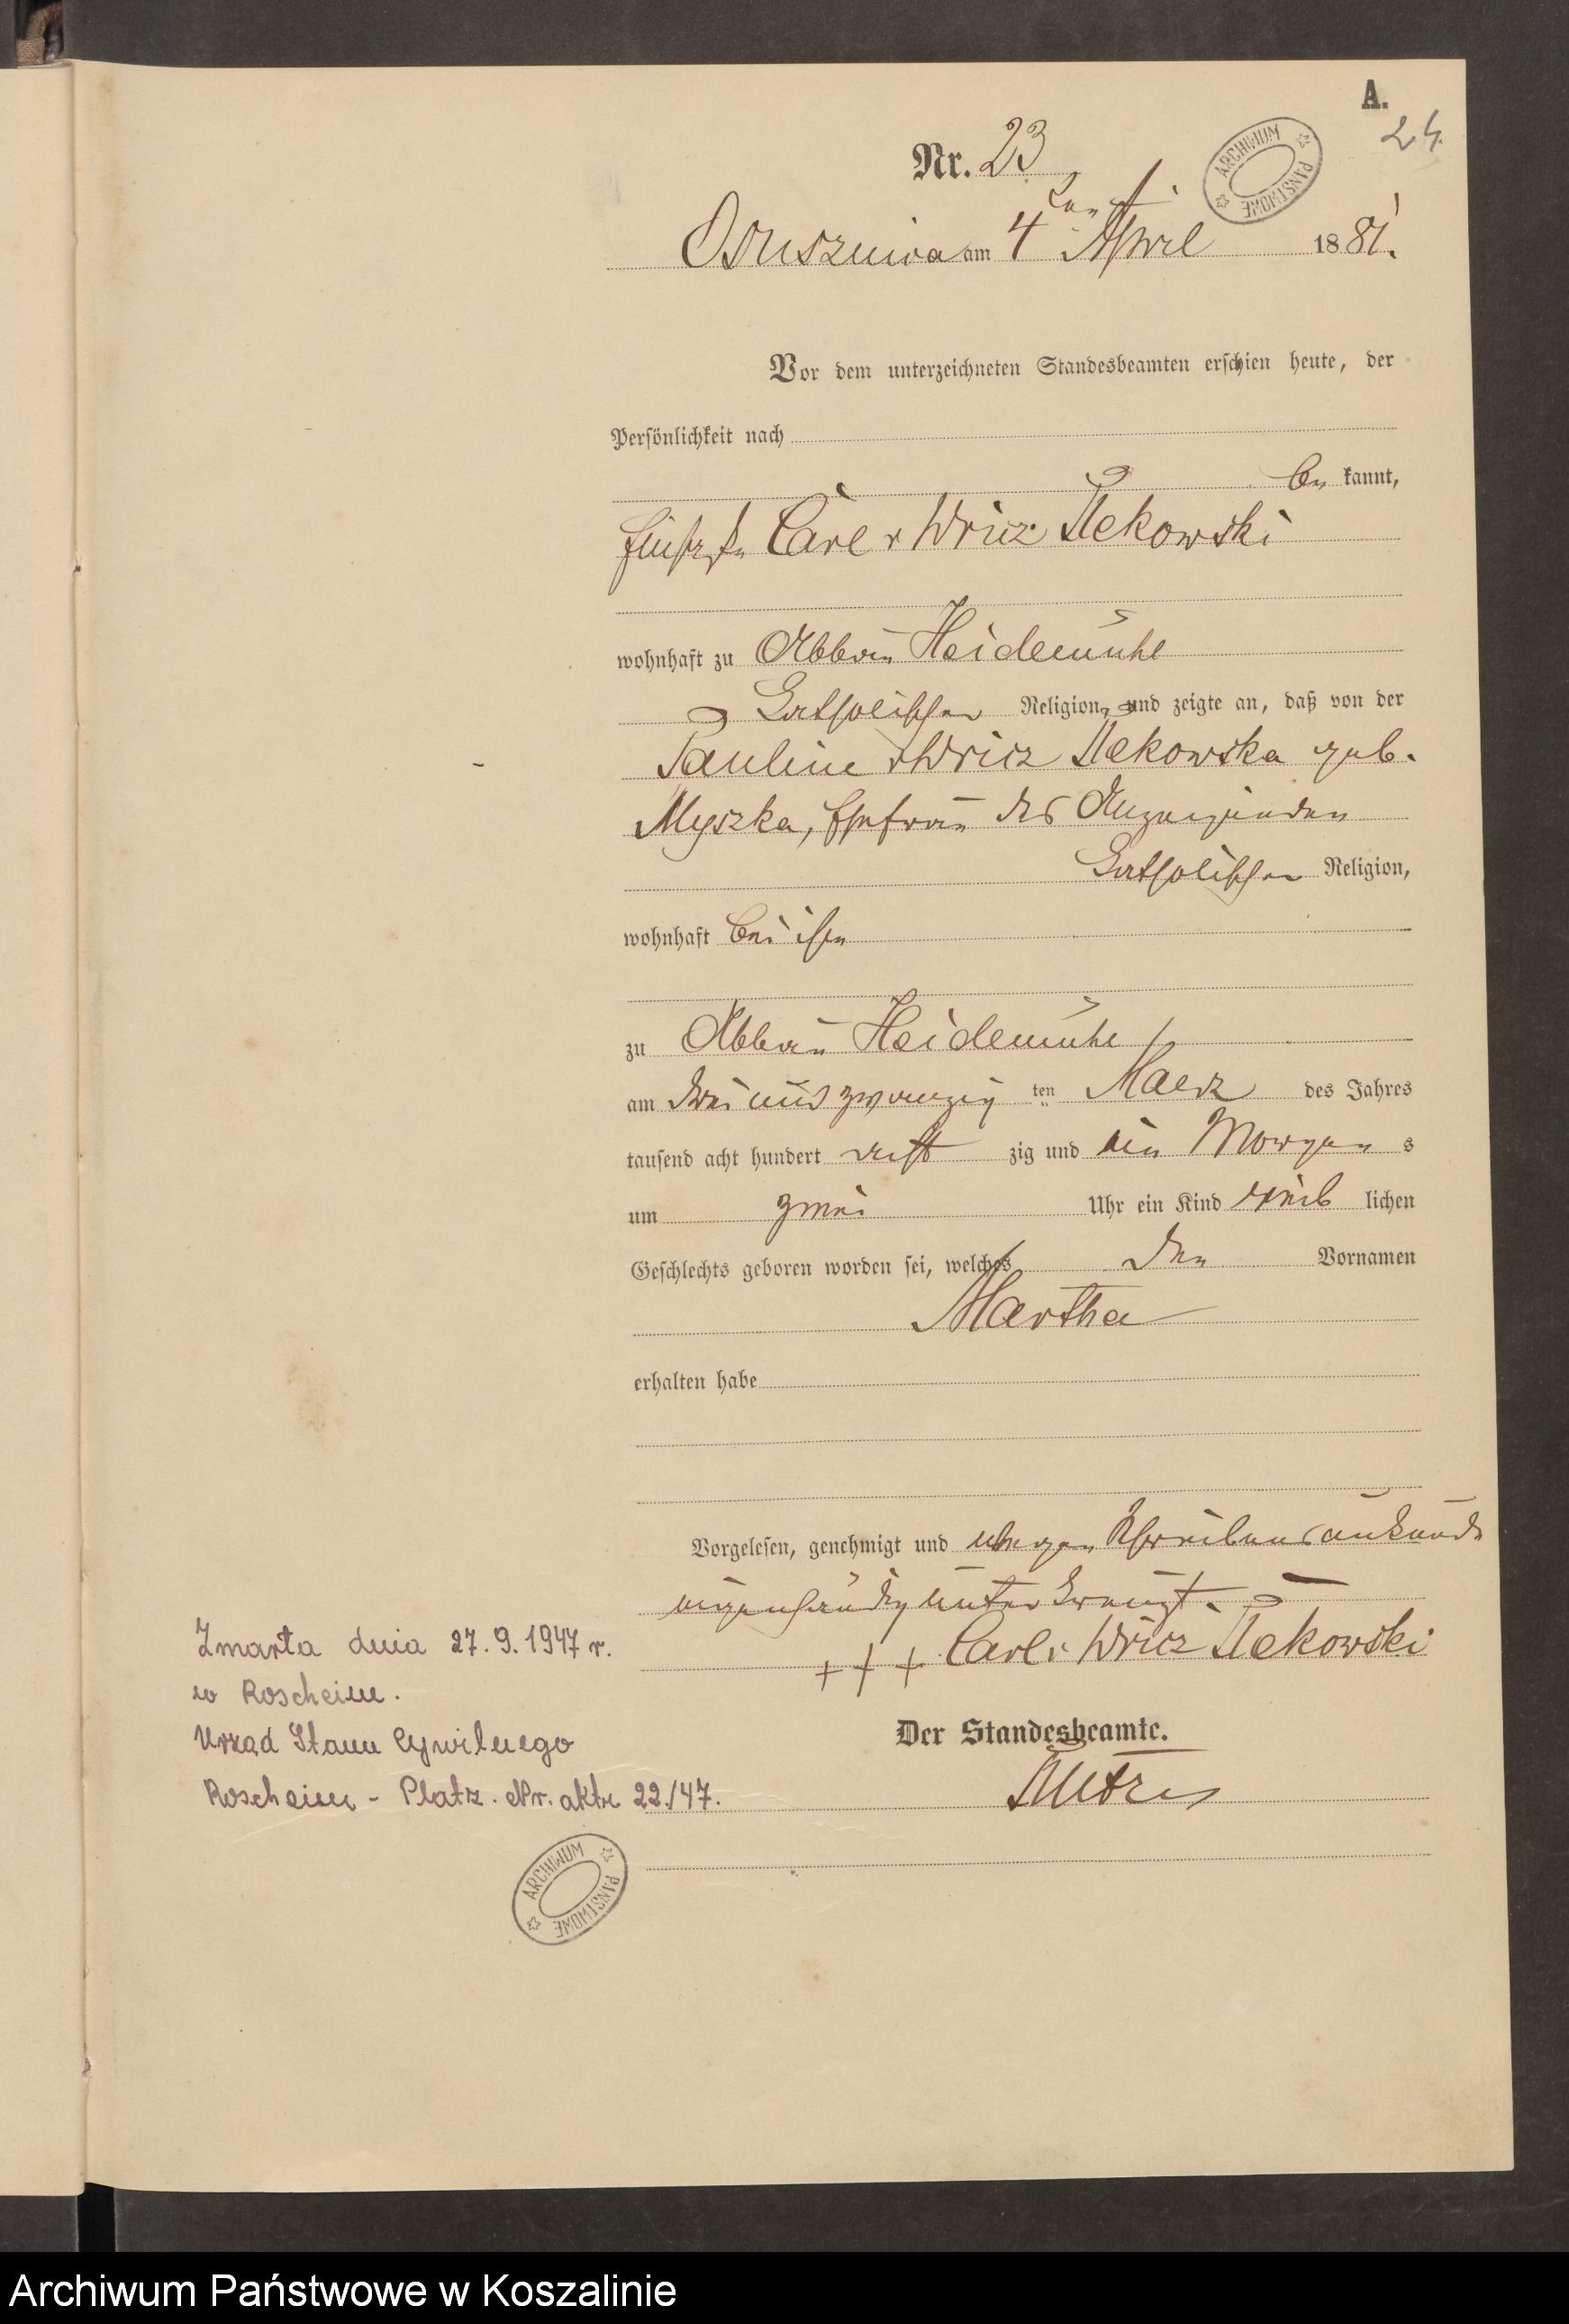 A.
24.
Nr. 23
ARCHIWUM PAŃSTWOWE
Osuszniça am 4 ten April 1881.
Vor dem unterzeichneten Standesbeamten erschien heute, der
Persönlichkeit nach
be kannt,
Carl v Wricz Rekowski
wohnhaft zu Abbau Heidemühl
katholischer Religion, und zeigte an, daß von der
Pauline v Wricz Rekowska geb.
Myszka, Ehefrau des Anzeigenden
katholischer Religion,
wohnhaft bei ihm
zu Abbau Heidemühl
am drei und zwanzig ten Maerz des Jahres
tausend acht hundert acht zig und ein Morgen s
um zwei Uhr ein Kind weib lichen
Geschlechts geboren worden sei, welches den Vornamen
Martha
erhalten habe
Vorgelesen, genehmigt und wegen Schreibensunkunde
eigenhändig unterkreuzt.
+++ Carl v Wricz Rekowski
Der Standesbeamte.
Zmarta dnia 27.9.1947 r.
w Roscheim.
Urząd Stanu Cywilnego
Roscheim - Platz. Nr. aktu 22/47.
ARCHIWUM PAŃSTWOWE
Archiwum Państwowe w Koszalinie